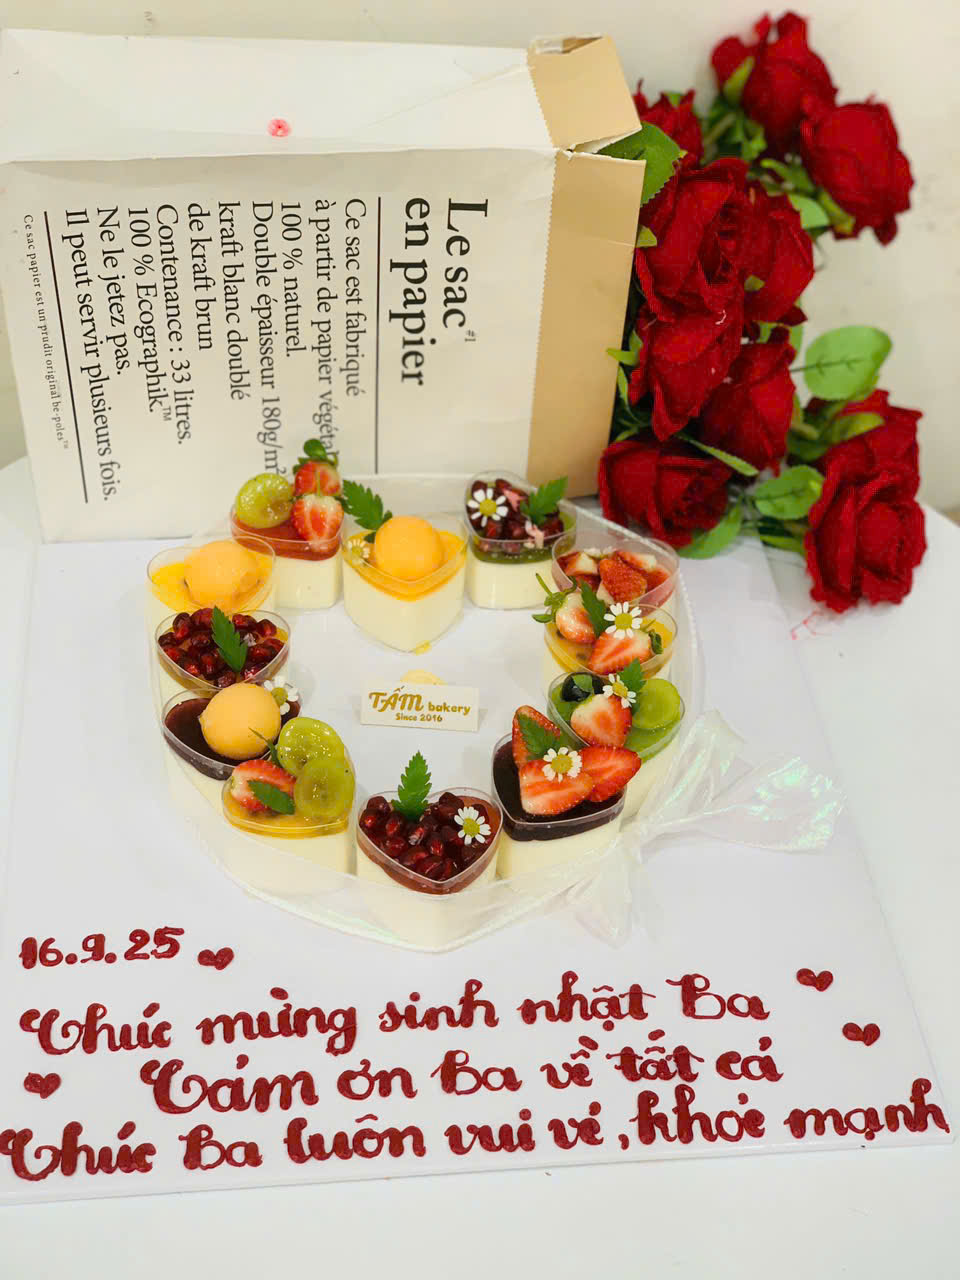 Le sac #1
en papier
Ce sac est fabriqué
à partir de papier végétal
100 % naturel.
Double épaisseur 180g/m²
kraft blanc doublé
de kraft brun
Contenance : 33 litres.
100 % Ecographik.™
Ne le jetez pas.
Il peut servir plusieurs fois.
Ce sac papier est un prudit original be-poles™
TẤM bakery
Since 2016
16.9.25
Chúc mừng sinh nhật Ba
Cảm ơn Ba về tất cả
Chúc Ba luôn vui vẻ, khỏe mạnh